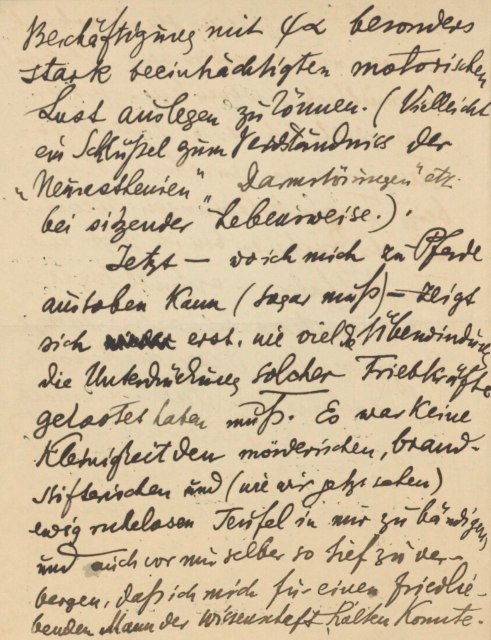 Beschäftigung mit ψα besonders
stark beeinträchtigten motorischen
Lust auslegen zu können. (Vielleicht
ein Schlüßel zum Verständniss der
„Neurasthenien" „Darmstörungen" etz.
bei sitzender Lebensweise.).
Jetzt — wo ich mich zu Pferde
austoben kann (sogar muß) — zeigt
sich erst, wie viel
die Unterdrückung solcher Triebkräfte
gekostet haben muß. Es war keine
Kleinigkeit den mörderischen, brand-
stifterischen und (wie wir jetzt sehen)
ewig ruhelosen Teufel in mir zu bändigen,
und auch vor mir selber so tief zu ver-
bergen, daß ich mich für einen friedlie-
benden Mann der Wissenschaft halten konnte.